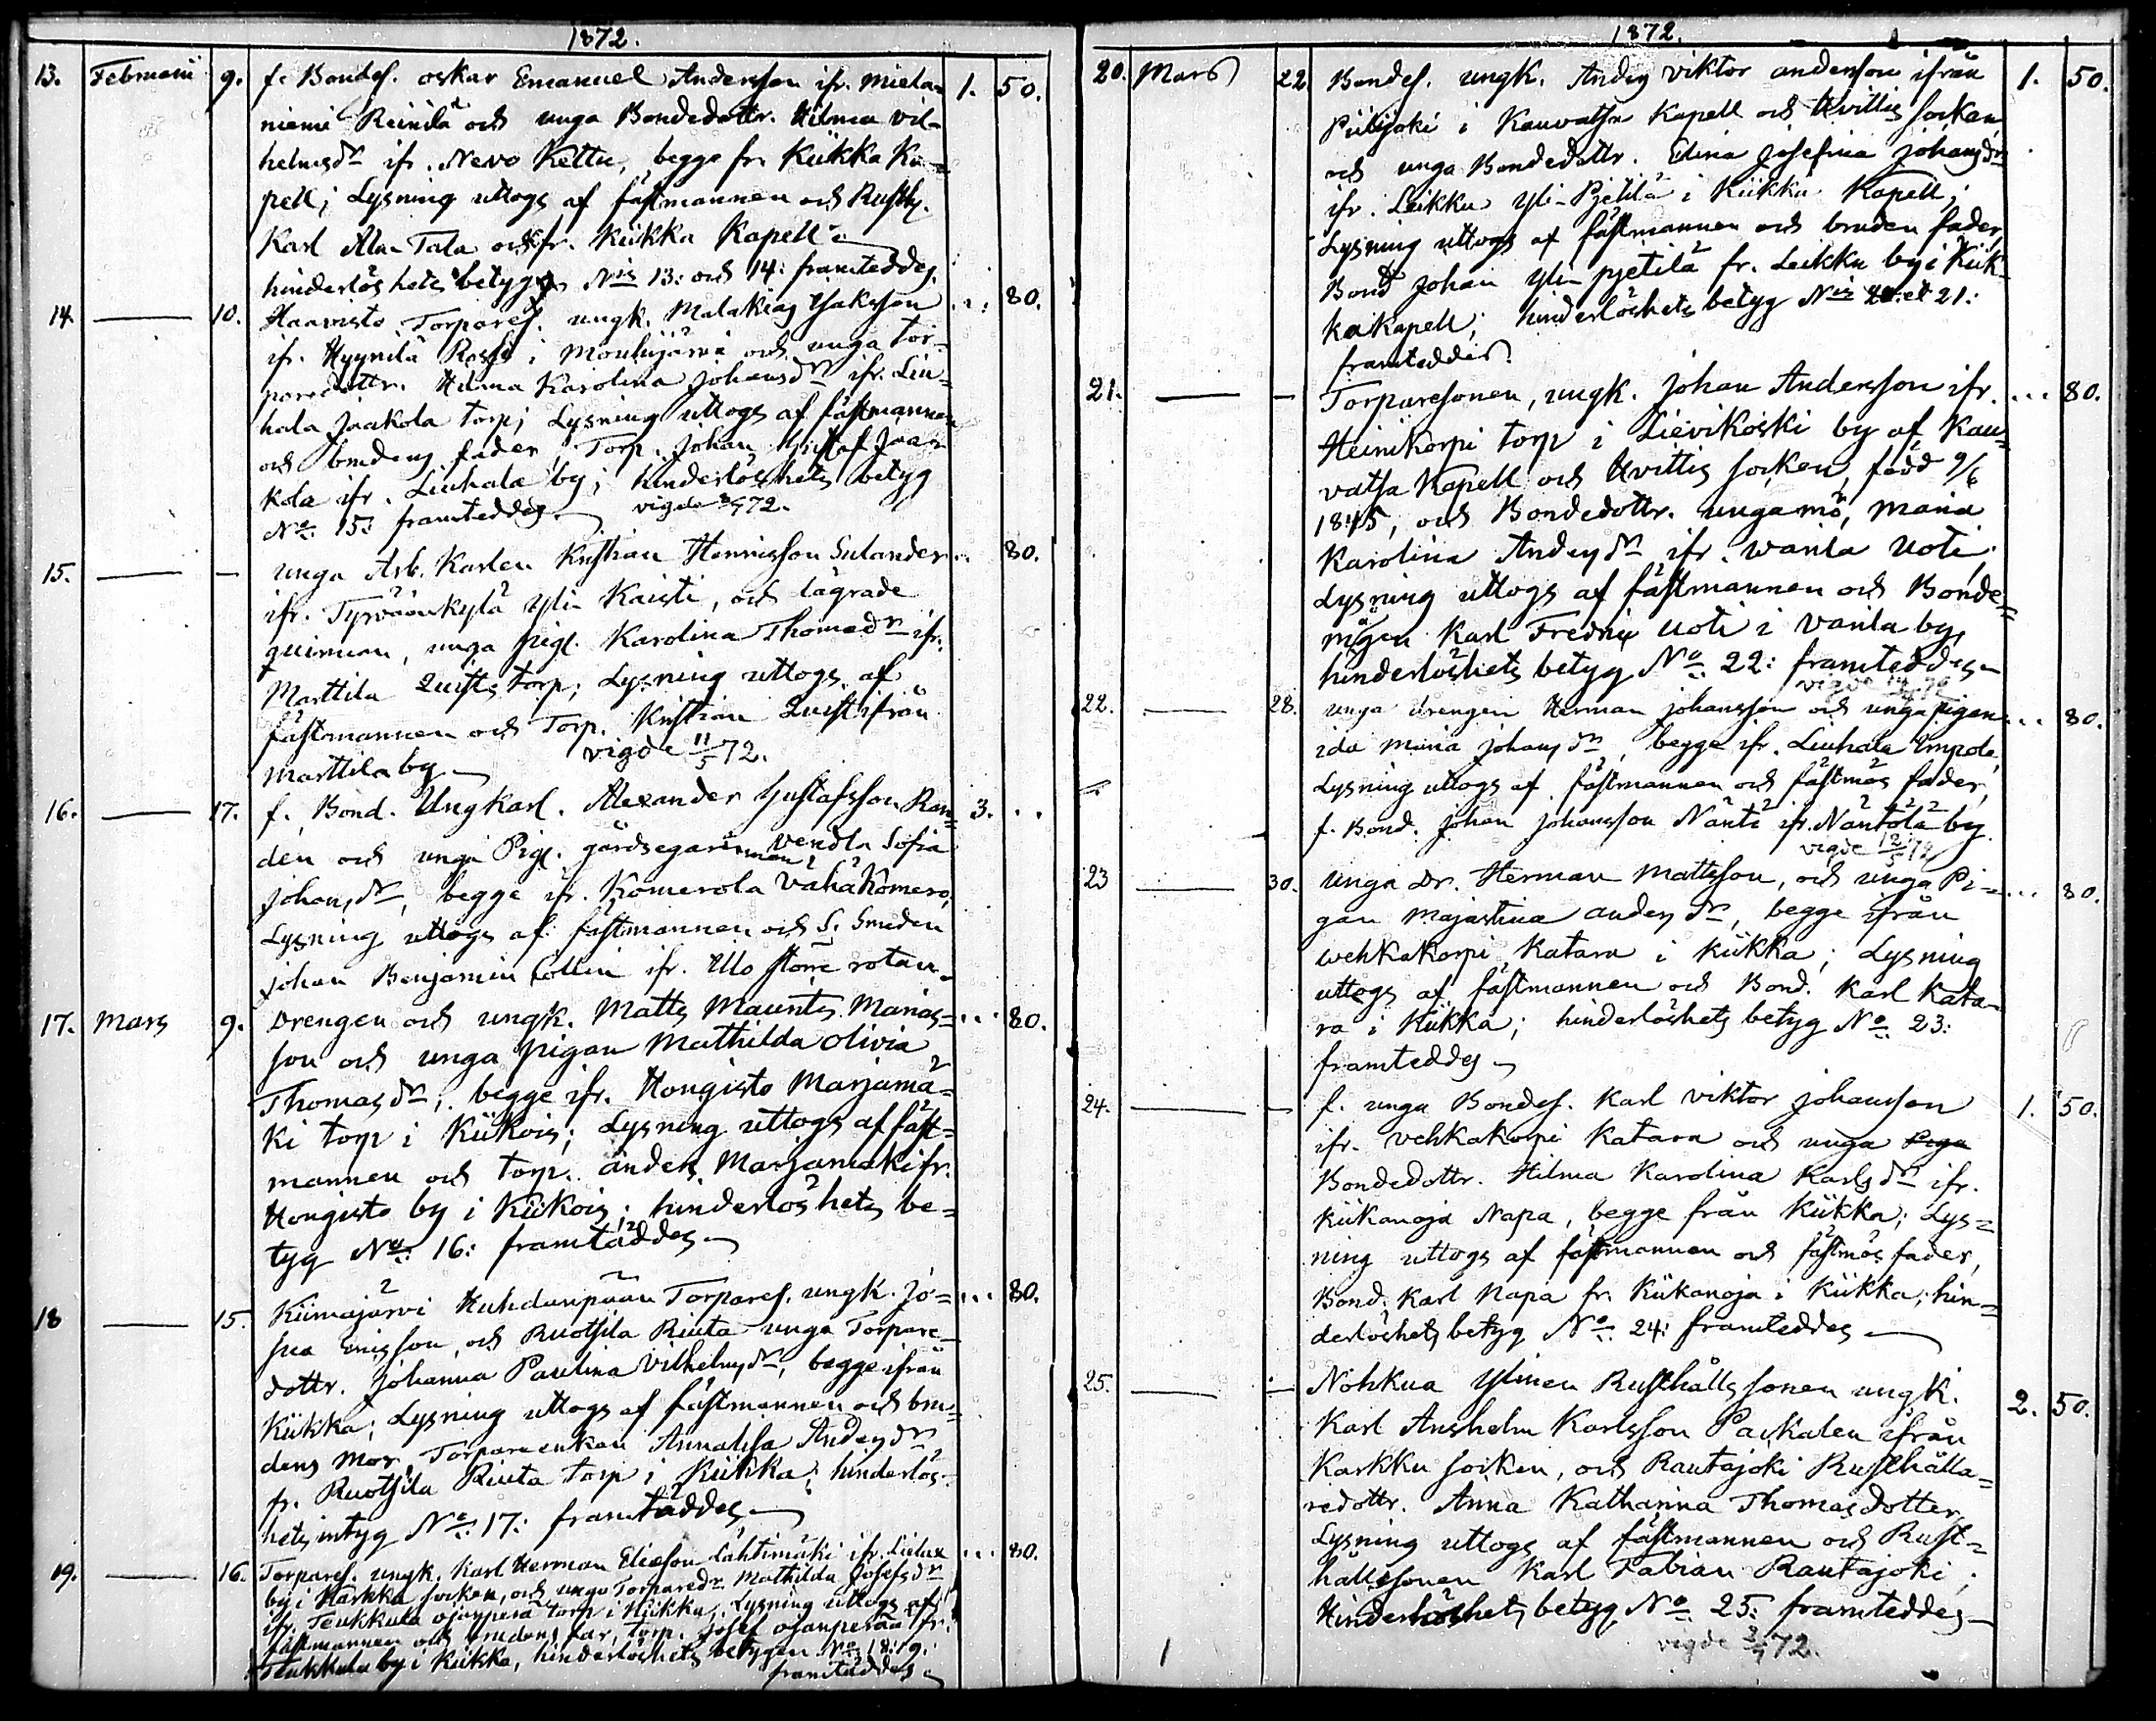 1872.
13. Februari 9. f. Bondes. oskar Emanuel Andersson ifr. Miela= 1. 50.
niemi Reinilä och unga Bondedottr. Hilma vil=
helmsdr ifr. Nevo Kettu, begge fr. Kiikka Ka=
pell; Lysning uttogs af fästmannen och Rusth.
Karl Ala Tala ockfr. Kiikka Kapell
hinderlöshets betyg Nis 13: och 14: framteddes.
14. — 10. Haavisto Torpares. ungk. Malakias Isaksson ... 80.
ifr. Hyynilä Rossi i Mouhijärvi och unga tor=
paredottr. Hilma Karolina Johansdr ifr. Liu=
hala Jaakola torp; Lysning uttogs af fästmannen
och brudens fader, Torp. Johan Gustaf Jaa=
kola ifr. Liuhala by; hinderlöshets betyg
No 15: framteddes. vigde 72.
15. — — unga Arb. Karlen Kristian Henriksson Sulander .. 80.
ifr. Tyrväänkylä Yli Kaisti, och lägrade
quinnan, unga pig. Karolina Thomasdr ifr.
Marttila Quists torp; Lysning uttogs af
fästmannen och Torp. Kristian Quist ifrån
Marttila by. vigde 11/5 72.
16. — 17. f. Bond. Ungkarl. Alexander Gustafsson Ran= 3. ..
den och unga Pig. gårdsegarinnan Vendla Sofia
Johansdr, begge ifr. Komerola Vähä Komero,
Lysning uttogs af fästmannen och S. Smeden
Johan Benjamin Collin ifr. Illo storre rotan.
17. Mars 9. Drengen och ungk. Matts Maunts Marias= ... 80.
son och unga pigan Mathilda Olivia
Thomasdr, begge ifr. Hongisto Marjamä=
ki torp i Kiikois; Lysning uttogs af fäst=
mannen och torp. anders Marjamäki fr.
Hongisto by i Kiikois; hinderlöshets be=
tyg No: 16: framtäddes
18 — 15. Kiimajärvi Huhdanpään Torpares. ungk. Jo= ... 80.
sua Erikson, och Ruotsila Riuta unga Torpare
dottr. Johanna Paulina Vilhelmsdr, begge ifrån
Kiikka; Lysning uttogs af fästmannen och bru=
dens mor, Torpareenkan Annalisa Andersdr
fr. Ruotsila Riuta torp i Kiikka; hinderlös=
hets intyg No: 17: framtäddes
19. — 16. Torpares. ungk. Karl Herman Eliasson Lähtimäki ifr. ... 80.
by i Karkku socken, och unga Torparedr. Mathilda Josefsdr
ifr. Teukkula Ojanperä torp i Kiikka; Lysning uttogs af
fästmannen och brudens far, torp. Josef Ojanperää fr.
Teukkula by i Kiikka, hinderlöshets betygen No 18: 19:
framtäddes
1872.
20. Mars 22 Bondes. ungk. Anders Viktor andersson ifrån 1. 50.
Piilijoki i Kauvatsa Kapell och Hvittis socken
och unga Bondedottr. Elina Josefina Johansdr
ifr. Leikku Yli-Pjetilä i Kiikka Kapell;
Lysning uttogs af fästmannen och bruden fader,
Bond Johan Yli-pjetilä fr. Leikku by i Kiik=
ka kapell; hinderlöshets betyg Nis 20: et 21:
framteddes.
21. — — Torparesonen, ungk. Johan Andersson ifr. ... 80.
Heinikorpi torp i Lievikoski by af Kau=
vatsa Kapell och Hvittis socken, född 9/6
1845, och Bondedottr. ungamö, Maria
Karolina Andersdr ifr. Wanla Uoti
Lysning uttogs af fästmannen och Bonde=
mågen Karl Fredrik Uoti i Vanla by,
hinderlöshets betyg No 22: framteddes
vigde 72
22. — 28. unga drengen Herman Johansson och unga pigan ... 80.
ida Maria Johansdr, begge ifr. Liuhala Empola,
Lysning uttogs af fästmannen och fästmös fader,
f. Bond. Johan Johansson Nänti ifr. Näntölä by
vigde 12/5 72
23 — 30. Unga Dr. Herman Mattsson, och unga Pi= ... 80.
gan Majastina andersdr, begge ifrån
wehkakorpi Katara i Kiikka; Lysning
uttogs af fästmannen och Bond. Karl Kata=
ra i Kiikka; hinderlöshets betyg No 23:
framteddes
24. — — f. unga Bondes. Karl Viktor Johansson 1. 50.
ifr. Vehkakorpi Katara och unga Piga
Bondedottr. Hilma Karolina Karlsdr ifr.
Kiikanoja Napa, begge från Kiikka; Lys=
ning uttogs af fästmannen och fästmös fader,
Bond. Karl Napa fr. Kiikanoja i Kiikka; hin=
derlöshets betyg No: 24: framteddes
25. — — Nohkua Ylinen Rusthålls sonen ungk. 2. 50.
Karl Anshelm Karlsson Packalen ifrån
Karkku socken, och Rautajoki Rusthålla=
redottr. Anna Katharina Thomasdotter,
Lysning uttogs af fästmannen och Rust=
hållssonen Karl Fabian Rautajoki;
Hinderlöshets betyg No 25: framteddes
vigde 72.